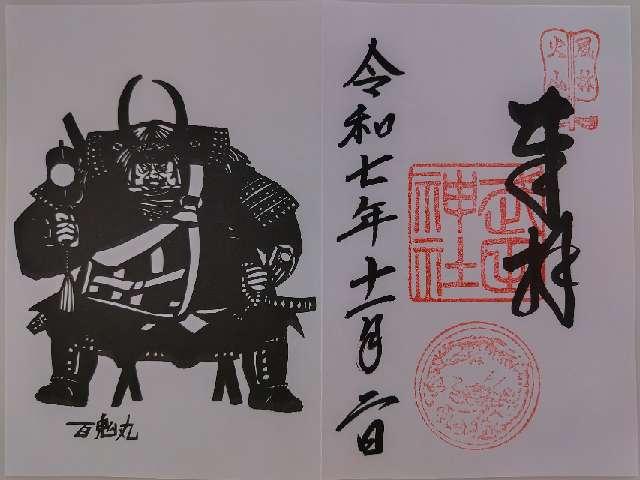 風林
火山
奉拝
武田
神社
令和七年十一月二日
百鬼丸